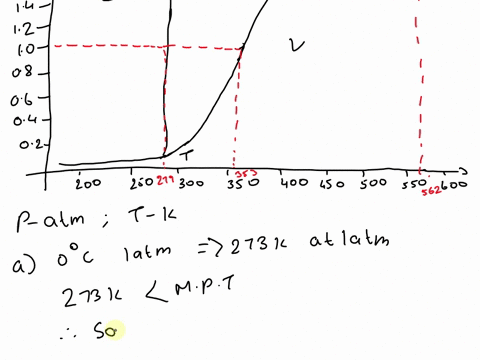 1.4
1.2
1.0
0.8
0.6
0.4
0.2
V
T
200 250 279 300 350 353 400 450 500 550 562 600
P-atm ; T-k
a) 0°C 1atm => 273k at 1atm
273k < M.P.T
∴ So